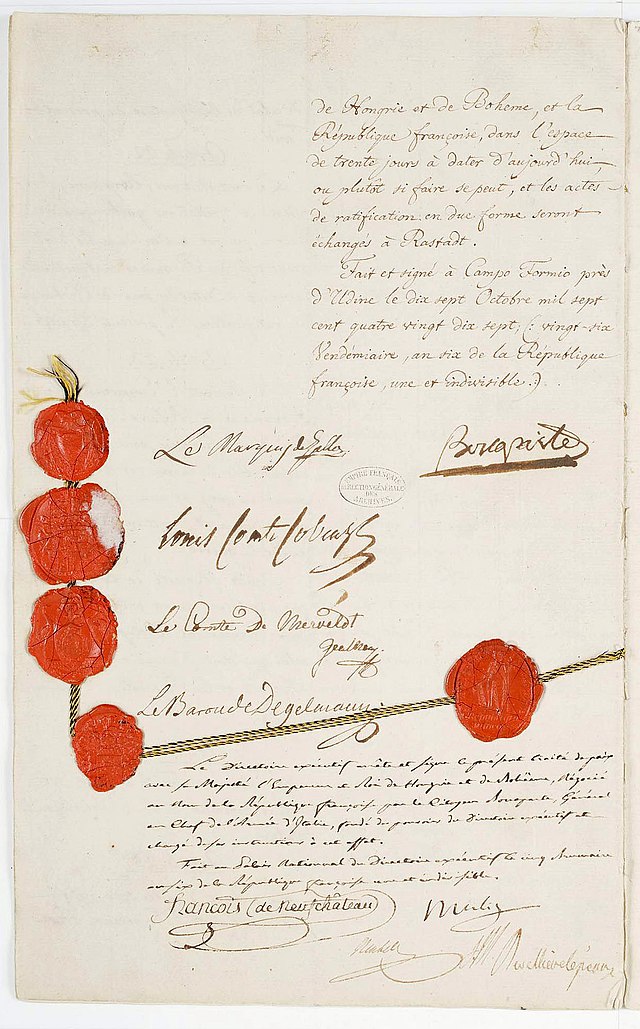 de Hongrie et de Boheme, et la
République françoise, dans l'espace
de trente jours à dater d'aujourd'hui,
ou plutôt si faire se peut, et les actes
de ratification en due forme seront
échangés à Rastadt.
Fait et signé à Campo Formio près
d'Udine le dix sept Octobre mil sept
cent quatre vingt dix sept, (: vingt-six
Vendémiaire, an six de la République
françoise, une et indivisible.)
Le Marquis de Gallo
Bonaparte
EMPIRE FRANÇAIS
DIRECTION GÉNÉRALE
DES
ARCHIVES.
Louis Comte Cobenzl
Le Comte De Merveldt
Le Baron de Degelmann
Le Directoire exécutif arrête et signe le présent traité de paix
avec sa Majesté l'Empereur et Roi de Hongrie et de Bohême, Négocié
au Nom de la République françoise par le Citoyen Bonaparte, Général
en Chef de l'Armée d'Italie, fondé de pouvoirs du Directoire exécutif et
chargé de ses instructions à cet effet.
Fait au Palais National du Directoire exécutif le cinq Brumaire
an six de la République françoise une et indivisible.
François (de Neufchâteau)
Merlin